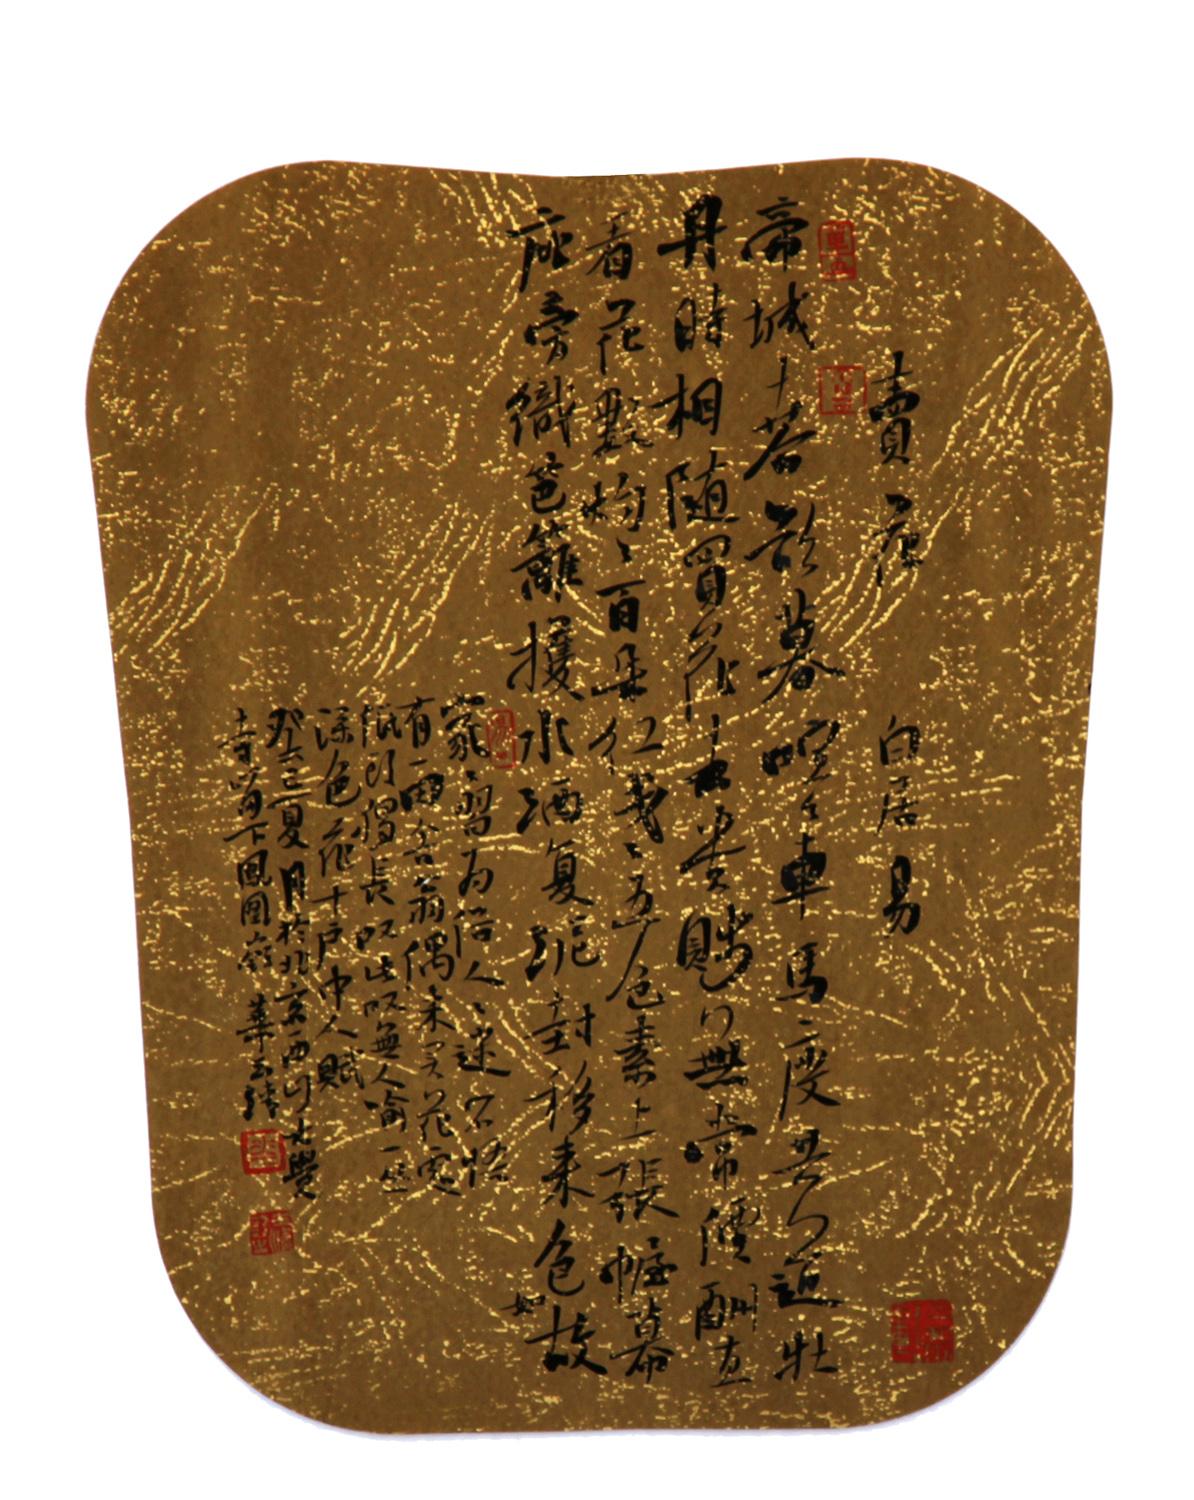 白居易
帝城春欲暮喧〻車馬度共道牡
丹時相隨買花去貴賤無常價酬直
看花數灼〻百朵紅戔〻五色素上張幄幕
庇旁織笆籬護水洒復泥封移來色如故
家〻習為俗人〻迷不悟
有一田舍翁偶來買花處
低頭獨長歎此歎無人喻一丛
深色花十戶中人賦
癸巳夏月於北京西山大覺
寺下鳳凰嶺 華玉